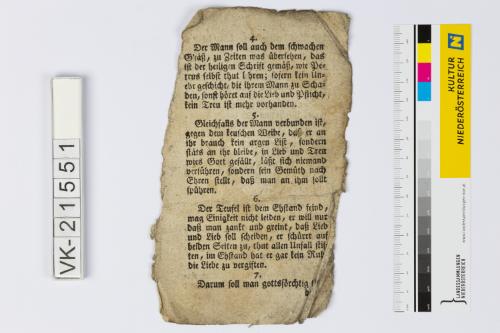 4.
Der Mann soll auch dem schwachen
Gfäß, zu Zeiten was übersehen, das
ist der heiligen Schrift gemäß, wie Pe-
trus selbst thut lehren; sofern kein Un-
ehr geschicht, die ihrem Mann zu Scha-
den, sonst höret auf die Lieb und Pflicht,
kein Treu ist mehr vorhanden.
5.
Gleichfalls der Mann verbunden ist,
gegen dem keuschen Weibe, daß er an
ihr brauch kein argen List, sondern
stäts an ihr bleibe, in Lieb und Treu
wies Gott gefällt, läßt sich niemand
verführen, sondern sein Gemüth nach
Ehren stellt, daß man an ihm sollt
spühren.
6.
Der Teufel ist dem Ehstand feind,
mag Einigkeit nicht leiden, er will nur
daß man zankt und greint, daß Lieb
und Lieb soll scheiden, er schüret auf
beiden Seiten zu, that allen Unfall stif-
ten, im Ehstand hat er gar kein Ruh
die Liebe zu vergiften.
7.
Darum soll man gottsförchtig
VK-21551
KULTUR
NIEDERÖSTERREICH
LANDESSAMMLUNGEN
NIEDERÖSTERREICH